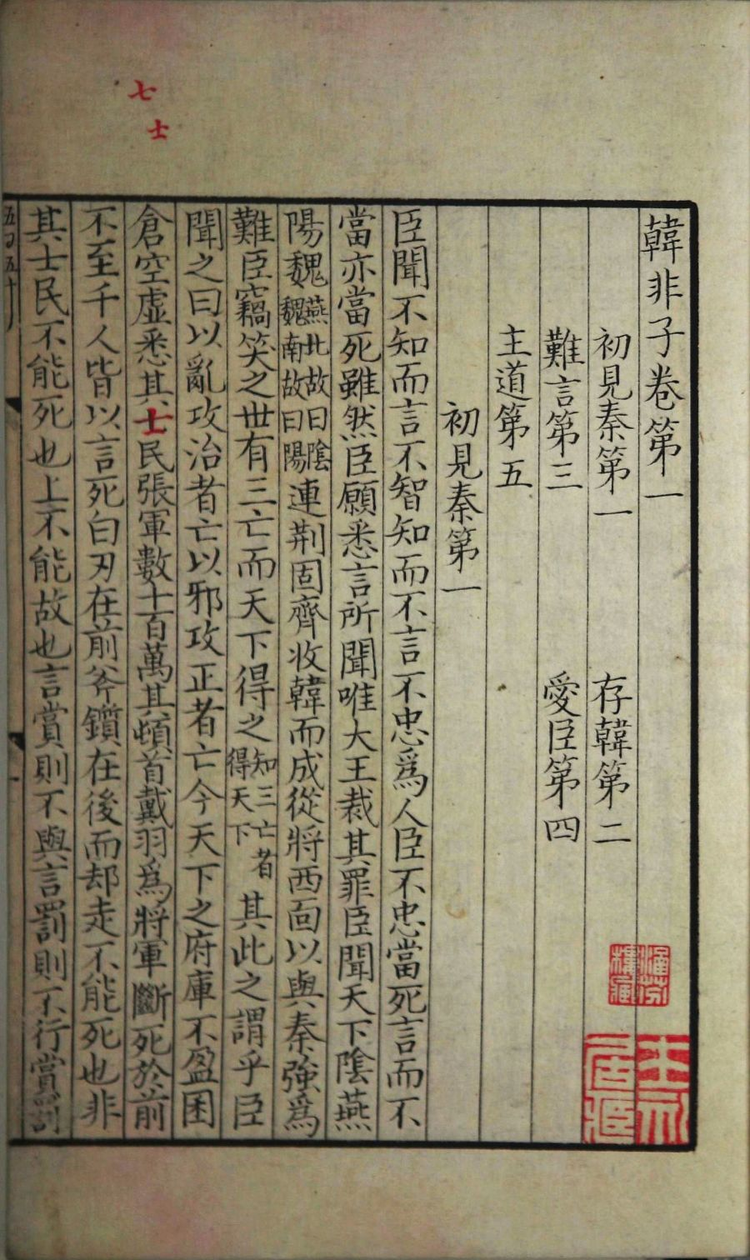 韓非子卷第一
初見秦第一 存韓第二
難言第三 愛臣第四
主道第五
初見秦第一
臣聞不知而言不智知而不言不忠爲人臣不忠當死言而不
當亦當死雖然臣願悉言所聞唯大王裁其罪臣聞天下陰燕
陽魏燕北故曰陰魏南故曰陽連荆固齊收韓而成從將西面以與秦強爲
難臣竊笑之世有三亡而天下得之知三亡者得天下其此之謂乎臣
聞之曰以亂攻治者亡以邪攻正者亡今天下之府庫不盈囷
倉空虛悉其士民張軍數十百萬其頓首戴羽爲將軍斷死於前
不至千人皆以言死白刃在前斧鑕在後而却走不能死也非
其士民不能死也上不能故也言賞則不與言罰則不行賞罰
七
士